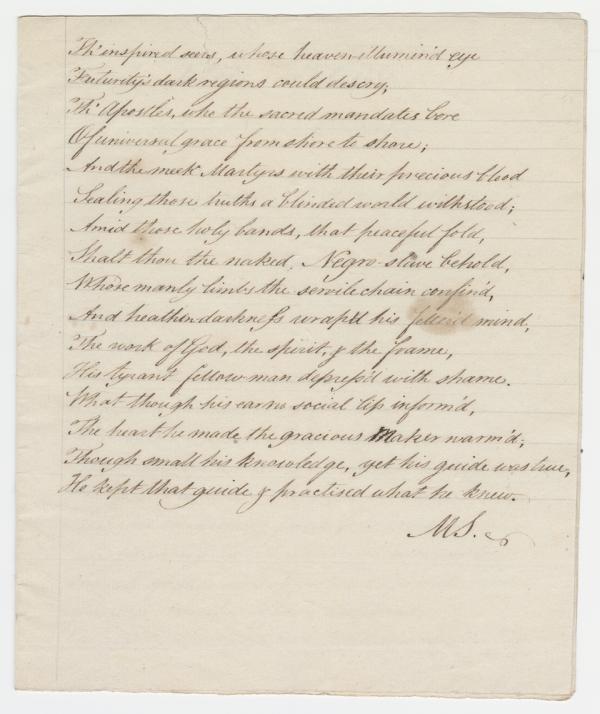 Th' inspired seers, whose heaven-illumin'd eye
Futurity's dark regions could descry;
Th' Apostles, who the sacred mandates bore
Of universal grace from shore to shore;
And the meek Martyrs with their precious blood
Sealing those truths a blinded world withstood;
Amid those holy bands, that peaceful fold,
Shalt thou the naked, Negro-slave behold,
Whose manly limbs the servile chain confin'd,
And heathen darkness wrap'd his fetter'd mind,
The work of God, the spirit, & the frame,
His tyrant fellow-man depress'd with shame.
What though his ear no social lip inform'd,
The heart he made the gracious Maker warm'd;
Though small his knowledge, yet his guide was true,
He kept that guide & practised what he knew.
M S.